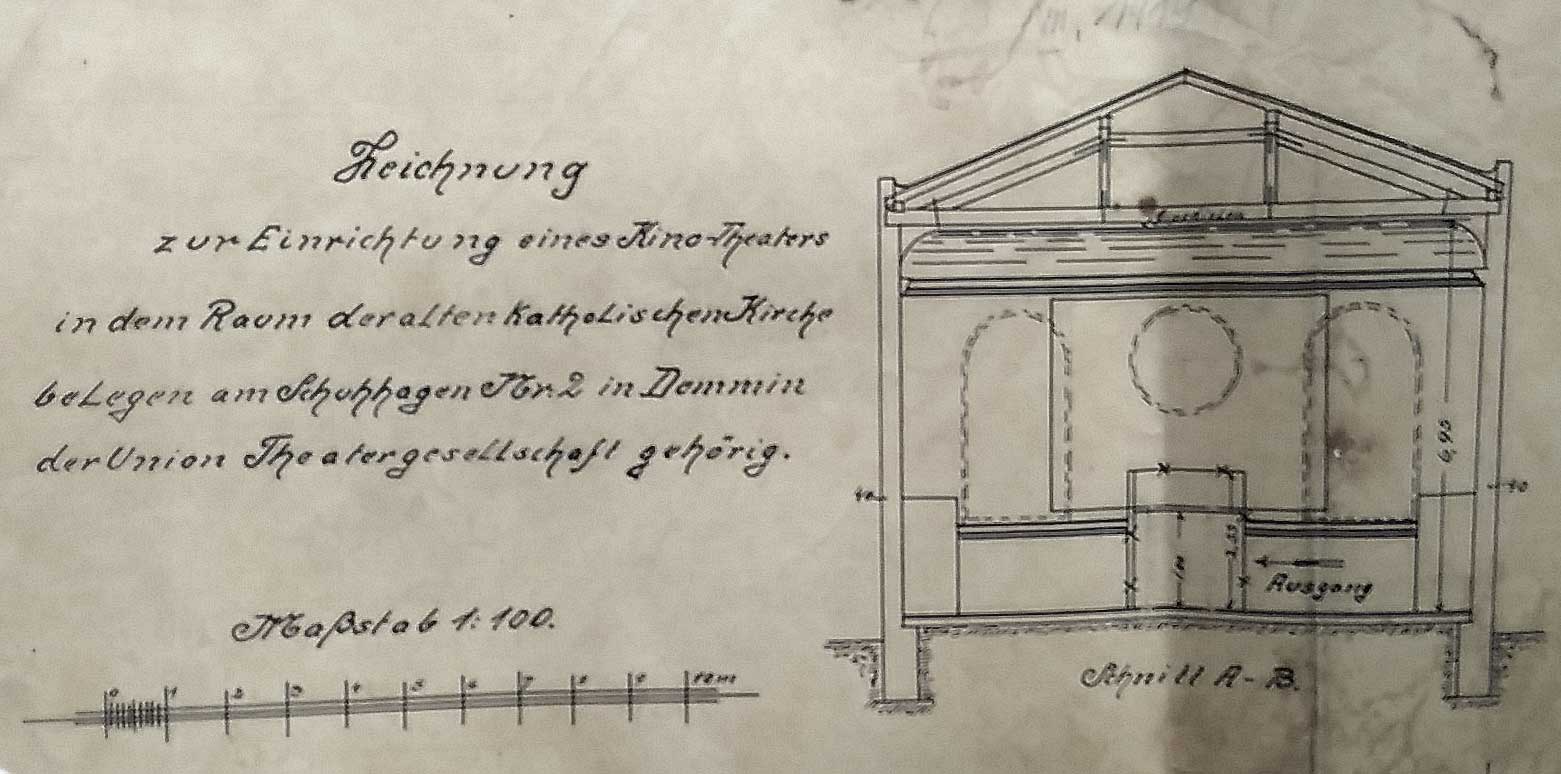 Zeichnung
zur Einrichtung eines Kino-Theaters
in dem Raum der alten Katholischen Kirche
belegen am Schuhhagen Nr. 2 in Demmin
der Union Theatergesellschaft gehörig.
Maßstab 1:100.
0 1 2 3 4 5 6 7 8 9 10 m
6,95
40
40
Ausgang
Schnitt A-B.